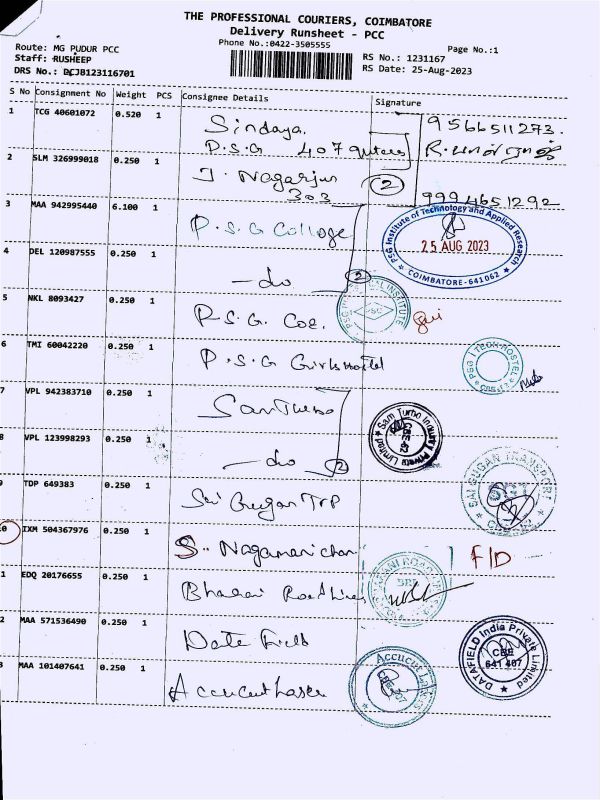 THE PROFESSIONAL COURIERS, COIMBATORE
Delivery Runsheet - PCC
Phone No.:0422-3505555
Page No.:1
Route: MG PUDUR PCC
Staff: RUSHEEP
DRS No.: BCJB123116701
RS No.: 1231167
RS Date: 25-Aug-2023
S No Consignment No Weight PCS Consignee Details Signature
1 TCG 40601072 0.520 1 Sindaya. 9566511273.
P.S.G 407 R.
2 SLM 326999018 0.250 1 J. Nagarjun 2
303 9994651292
3 MAA 942995440 6.100 1 P.S.G College
PSG Institute of Technology and Applied Research
25 AUG 2023
COIMBATORE-641062
4 DEL 120987555 0.250 1 -do 2
5 NKL 8093427 0.250 1 P.S.G. Coe.
INSTITUTE
6 TMI 60042220 0.250 1 P.S.G Girls hostel
PSG ITECH HOSTEL
7 VPL 942383710 0.250 1 Santurbo
Sam Turbo Industry Private Limited
8 VPL 123998293 0.250 1 -do 2
9 TDP 649383 0.250 1 Sai Gugan Trp
SAI GUGAN TRANSPORT
10 IXM 504367976 0.250 1 S. Nagamanichan F/D
11 EDQ 20176655 0.250 1 Bharani Roadlines
12 MAA 571536490 0.250 1 Datafield
DATAFIELD India Private Limited
CBE
641 407
13 MAA 101407641 0.250 1 Accucut Laser